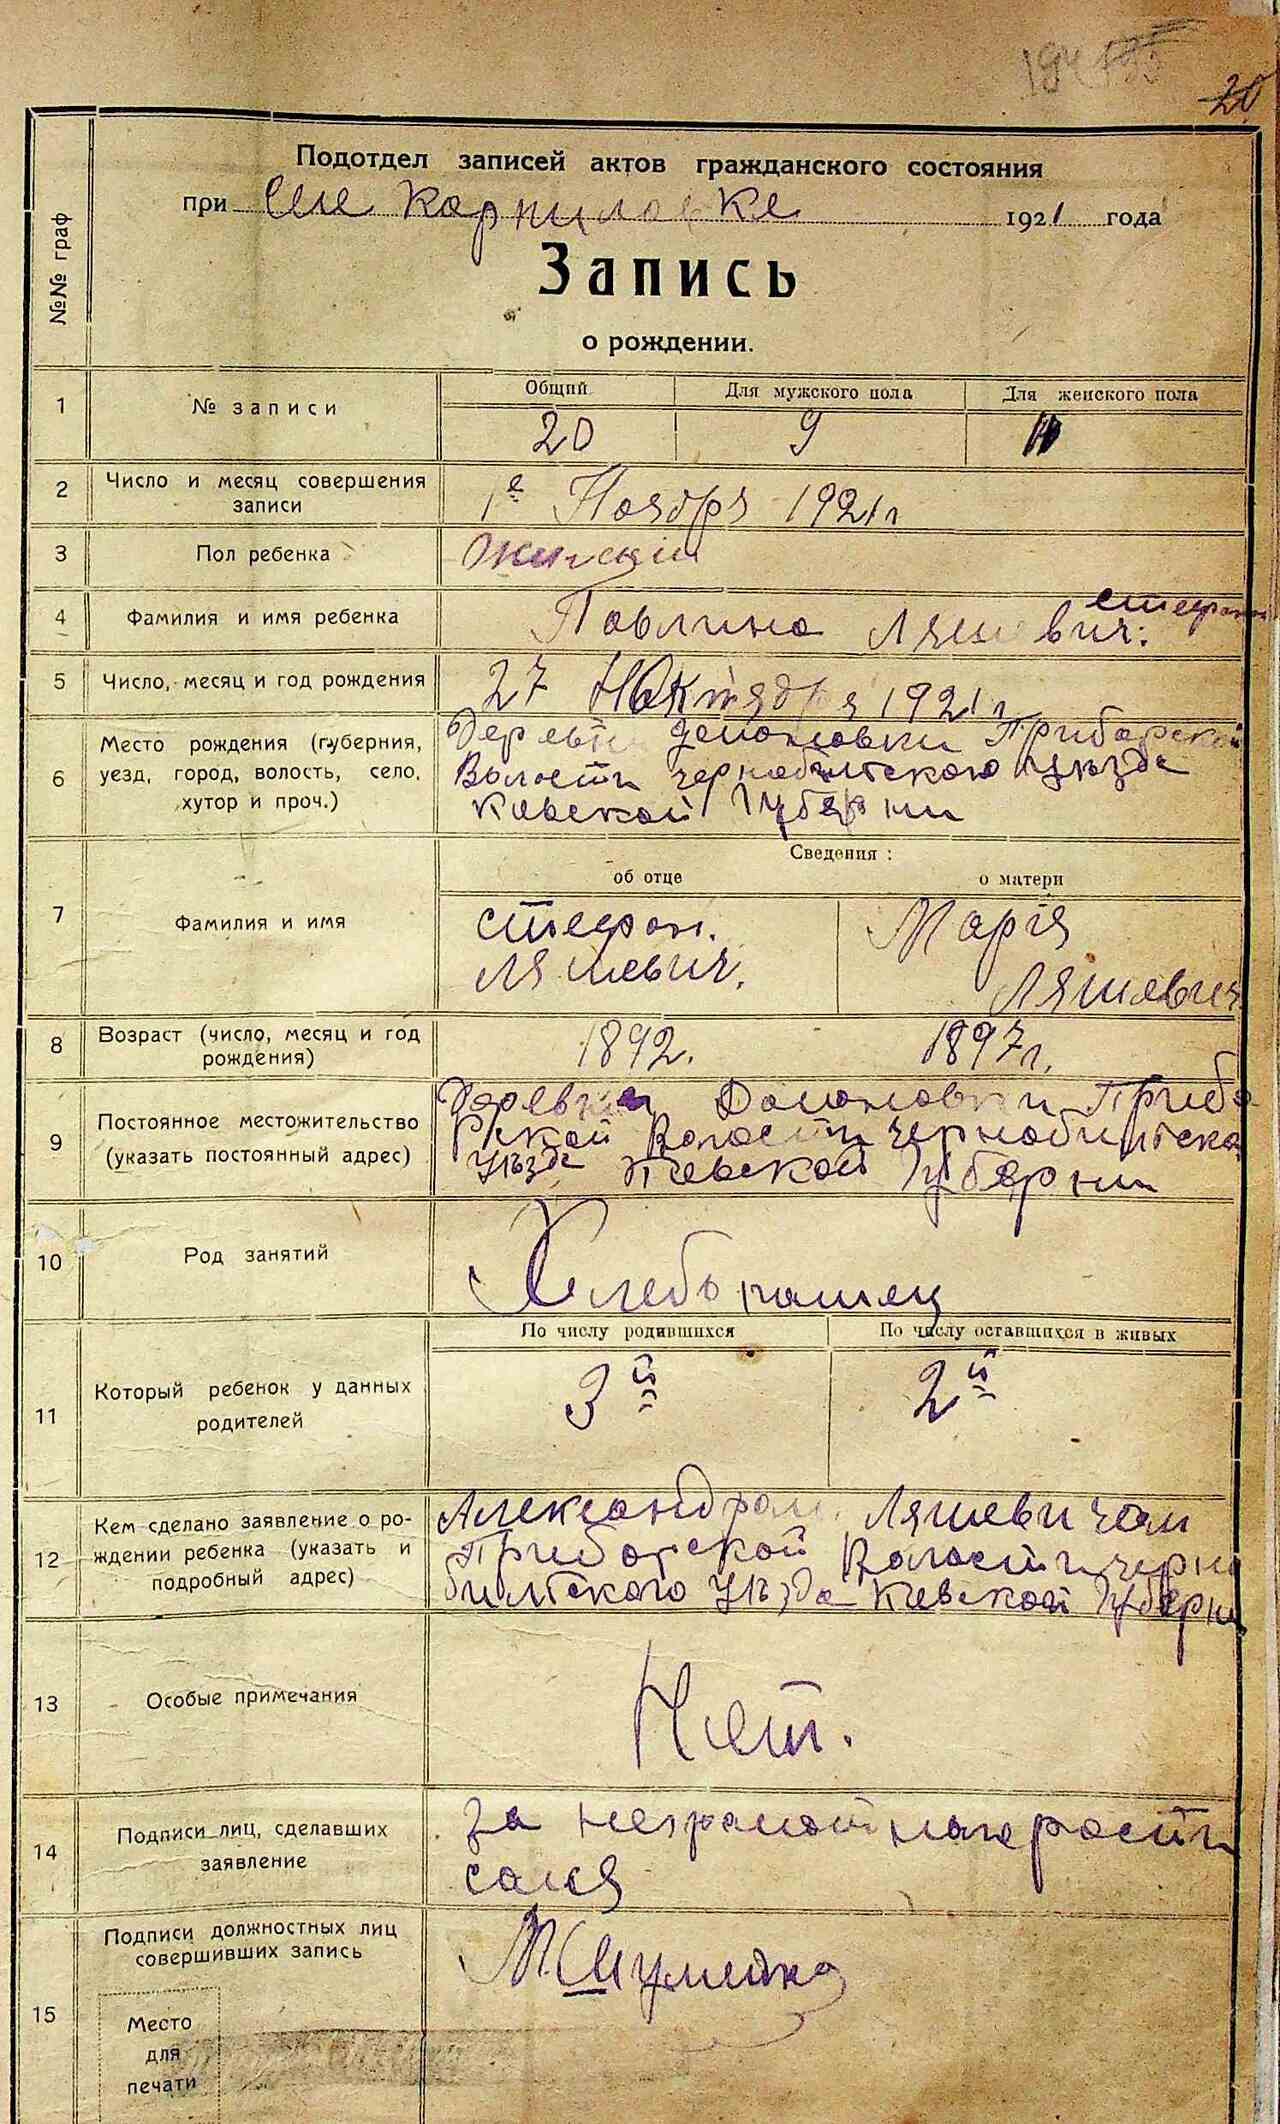 20
Подотдел записей актов гражданского состояния
при селе Карпиловке 1921 года
Запись
о рождении.
№№ граф
1 № записи Общий Для мужского пола Для женского пола
20 9
2 Число и месяц совершения записи
1е Ноября 1921 г
3 Пол ребенка
женский
4 Фамилия и имя ребенка
Павлина Ляшевич: Стефанов
5 Число, месяц и год рождения
27 Октября 1921 г
6 Место рождения (губерния,
уезд, город, волость, село,
хутор и проч.)
Деревни Прибарской
Волости чернобилтского уъзда
Киевской Губерни
Сведения:
об отце о матери
7 Фамилия и имя
Стефан. Марія
Ляшевич. Ляшевич
8 Возраст (число, месяц и год
рождения)
1892. 1897 г.
9 Постоянное местожительство
(указать постоянный адрес)
Деревни Прибо
рской Волости чернобилтска
уъзда Киевской Губерни
10 Род занятий
Хлебопашец
11 Который ребенок у данных
родителей
По числу родившихся По числу оставшихся в живых
3й 2й
12 Кем сделано заявление о ро-
ждении ребенка (указать и
подробный адрес)
Александрам Ляшевичам
Приборской Волости черно
билтского уъзда Киевской Губерни
13 Особые примечания
Нет.
14 Подписи лиц, сделавших
заявление
за неграмотнаго
15 Подписи должностных лиц
совершивших запись
М Шумейко
Место
для
печати